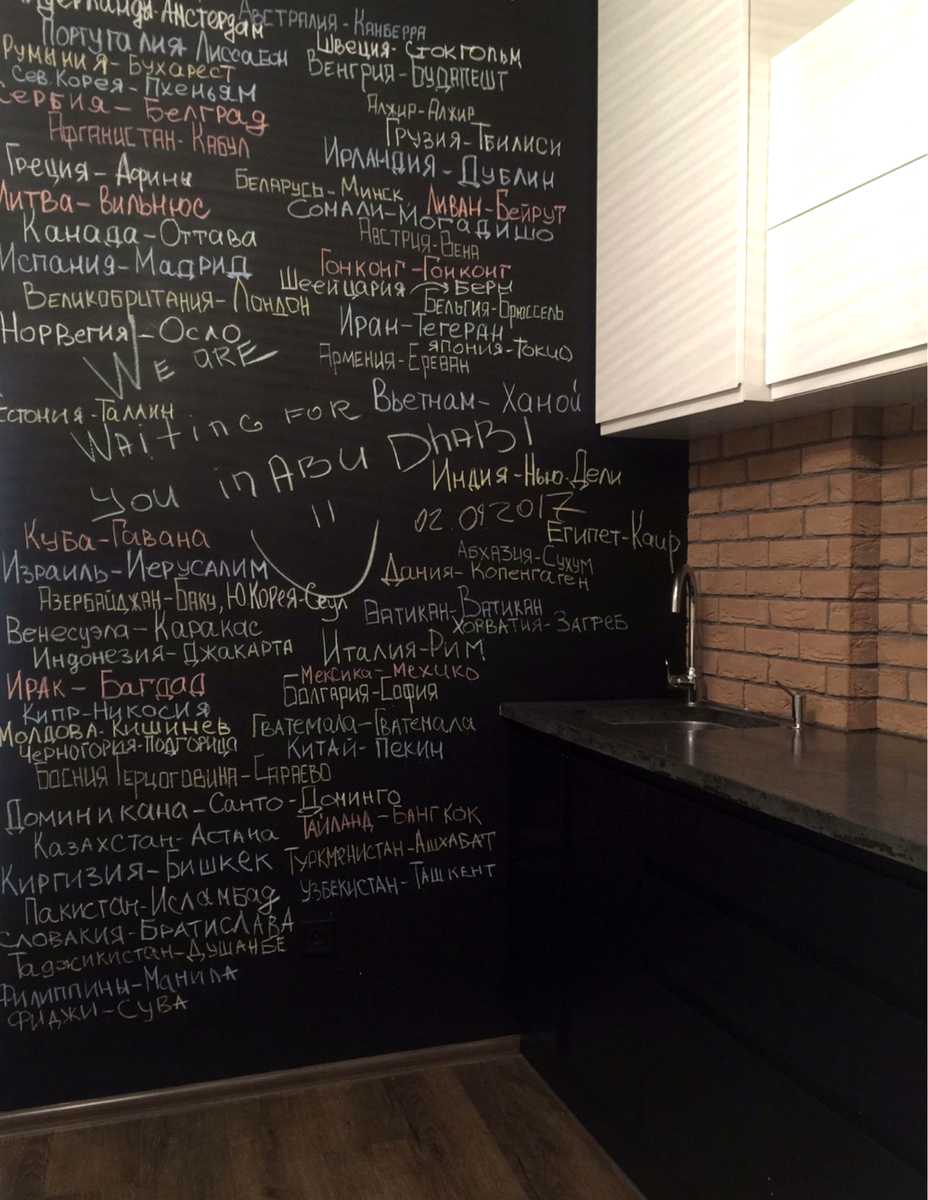 Амстердам
Австралия-Канберра
Португалия Лиссабон
Швеция-Стокгольм
Румыния-Бухарест
Венгрия-Будапешт
Сев.Корея-Пхеньям
Сербия-Белград
Алжир-Алжир
Афганистан-Кабул
Грузия-Тбилиси
Греция-Афины
Ирландия-Дублин
Беларусь-Минск
Литва-Вильнюс
Ливан-Бейрут
Сомали-Могадишо
Канада-Оттава
Австрия-Вена
Испания-Мадрид
Гонконг-Гонконг
Швейцария Берн
Великобритания-Лондон
Бельгия-Брюссель
Норвегия-Осло
Иран-Тегеран
Япония-Токио
Армения-Ереван
We are
Вьетнам-Ханой
Эстония-Таллин
Waiting for
you in Abu Dhabi
Индия-Нью-Дели
02.09.2017
Египет-Каир
Куба-Гавана
Абхазия-Сухум
Израиль-Иерусалим
Дания-Копенгаген
Азербайджан-Баку, Ю.Корея-Сеул
Ватикан-Ватикан
Венесуэла-Каракас
Хорватия-Загреб
Индонезия-Джакарта
Италия-Рим
Ирак-Багдад
Мексика-Мехико
Болгария-София
Кипр-Никосия
Молдова-Кишинев
Гватемала-Гватемала
Черногория-Подгорица
Китай-Пекин
Босния Герцоговина-Сараево
Доминикана-Санто-Доминго
Казахстан-Астана
Тайланд-Бангкок
Киргизия-Бишкек
Туркменистан-Ашхабат
Пакистан-Исламбад
Узбекистан-Ташкент
Словакия-Братислава
Таджикистан-Душанбе
Филиппины-Манила
Фиджи-Сува